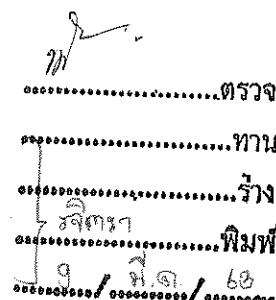 ....................ตรวจ
....................ทาน
....................ร่าง
รจิตรา
....................พิมพ์
9 / มี.ค. / 68